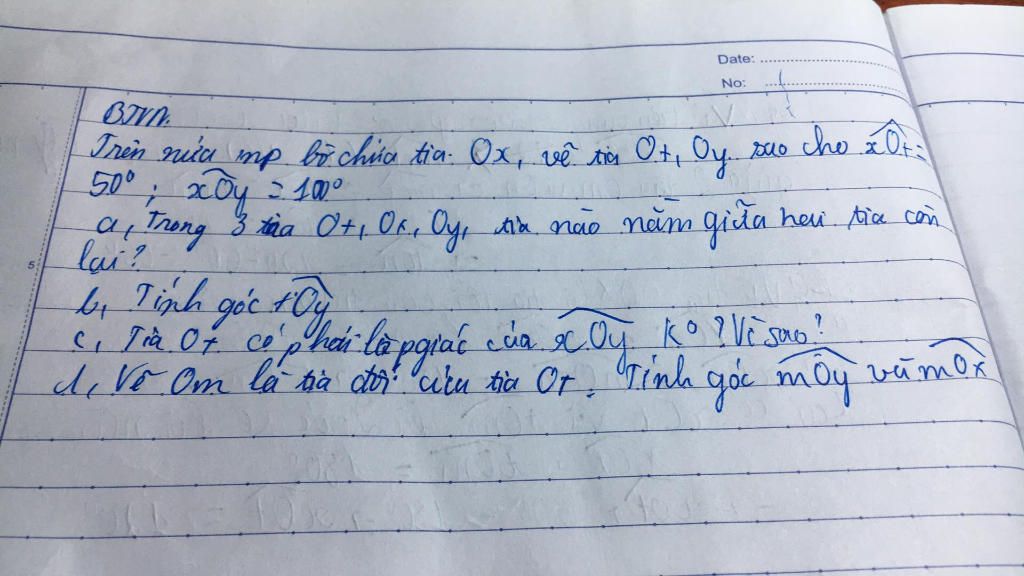 Date:
No:
BTVN.
Trên nửa mp bờ chứa tia Ox, vẽ tia Ot, Oy sao cho xOt =
50° ; xOy = 100°
a, Trong 3 tia Ot, Ox, Oy, tia nào nằm giữa hai tia còn
lại?
5
b, Tính góc tOy
c, Tia Ot có phải là pgiác của xOy K°? Vì sao?
d, Vẽ Om là tia đối của tia Ot. Tính góc mOy và mOx